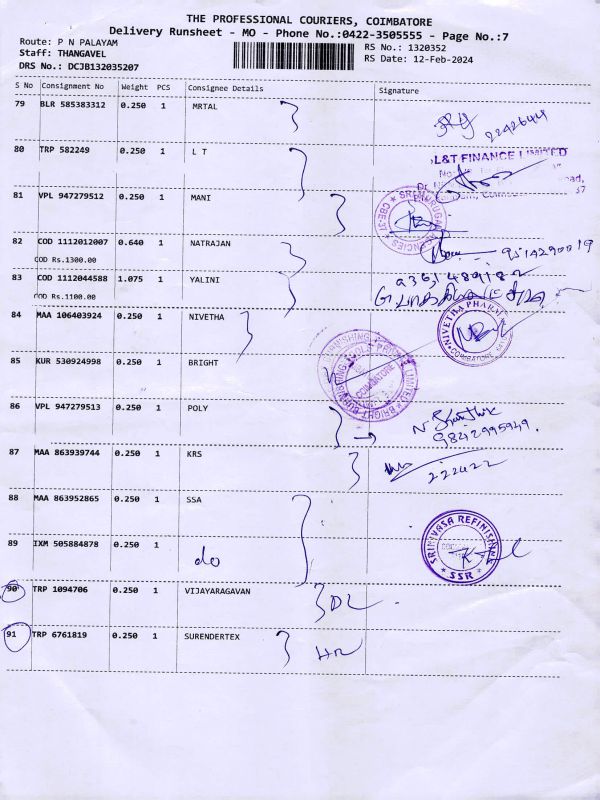 THE PROFESSIONAL COURIERS, COIMBATORE
Delivery Runsheet - MO - Phone No.:0422-3505555 - Page No.:7
Route: P N PALAYAM
RS No.: 1320352
Staff: THANGAVEL
RS Date: 12-Feb-2024
DRS No.: DCJB132035207
S No Consignment No Weight PCS Consignee Details Signature
79 BLR 585383312 0.250 1 MRTAL
80 TRP 582249 0.250 1 L T
L&T FINANCE LIMITED
81 VPL 947279512 0.250 1 MANI
SRI MURUGAN AGENCIES
CBE-37
82 COD 1112012007 0.640 1 NATRAJAN
COD Rs.1300.00
83 COD 1112044588 1.075 1 YALINI
COD Rs.1100.00
84 MAA 106403924 0.250 1 NIVETHA
NIVETHA PHARMA
COIMBATORE
85 KUR 530924998 0.250 1 BRIGHT
BRIGHT BURNISHING TOOLS PRIVATE LIMITED
COIMBATORE
86 VPL 947279513 0.250 1 POLY
9842995949.
87 MAA 863939744 0.250 1 KRS
222422
88 MAA 863952865 0.250 1 SSA
89 IXM 505884878 0.250 1 do
SRINIVASA REFINISHING
SSR
90 TRP 1094706 0.250 1 VIJAYARAGAVAN DL
91 TRP 6761819 0.250 1 SURENDERTEX